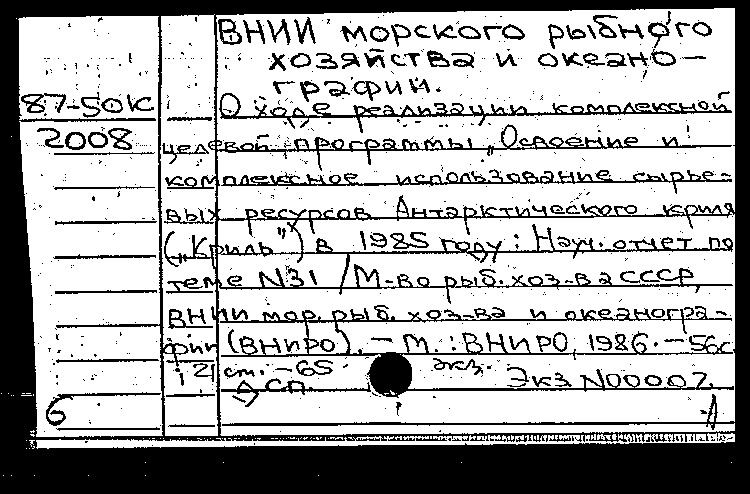 ВНИИ морского рыбного
хозяйства и океано-
графии.
87-50К
О ходе реализации комплексной
2008
целевой программы „Освоение и
комплексное использование сырье-
вых ресурсов Антарктического криля
(„Криль") в 1985 году: Науч. отчет по
теме N31 / М-во рыб. хоз-ва СССР,
ВНИИ мор. рыб. хоз-ва и океаногра-
фии (ВНИРО). - М.: ВНИРО, 1986. - 56с.
21 ст. - 65 экз.
ДСП. Экз N00007.
6